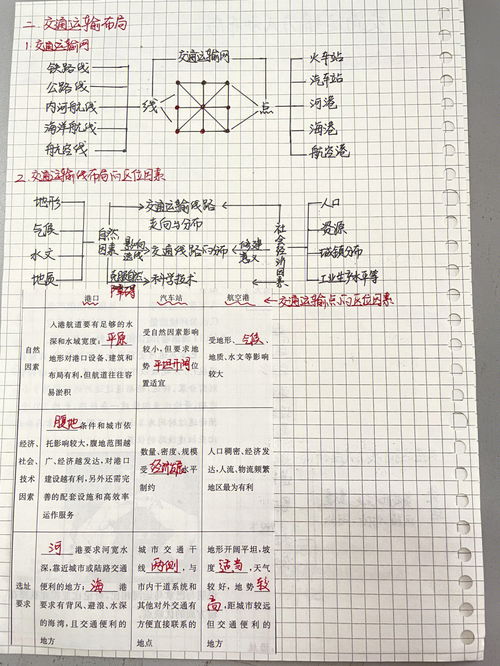 二 交通运输布局
1. 交通运输网
铁路线
公路线
内河航线
海洋航线
航空线
线
交通运输网
点
火车站
汽车站
河港
海港
航空港
2. 交通运输线布局的区位因素
地形
气候
水文
地质
自然因素
影响选线
克服自然障碍
交通运输线路走向与分布
交通线路的分布
科学技术
修建意义
社会经济因素
人口
资源
城镇分布
工业生产水平等
交通运输点的区位因素
港口 汽车站 航空港
自然因素
人港航道要有足够的水深和水域宽度;平原地形对港口设备、建筑和布局有利,但航道往往容易淤积
受自然因素影响较小,但要求地势平坦开阔位置适宜
受地形、气候、地质、水文等影响较大
经济、社会、技术因素
腹地条件和城市依托影响较大,腹地范围越广、经济越发达,对港口建设越有利,另外还需完善的配套设施和高效率运作服务
数量、密度、规模受经济发展水平制约
人口稠密、经济发达,人流、物流频繁地区最为有利
选址要求
河港要求河宽水深,靠近城市或陆路交通便利的地方;海港要求有背风、避浪、水深的海湾,且交通便利的地方
城市交通干线两侧,与市内干道系统和其他对外交通有方便直接联系的地点
地形开阔平坦,坡度适当,天气较好,地势较高,距城市较远但交通便利的地方